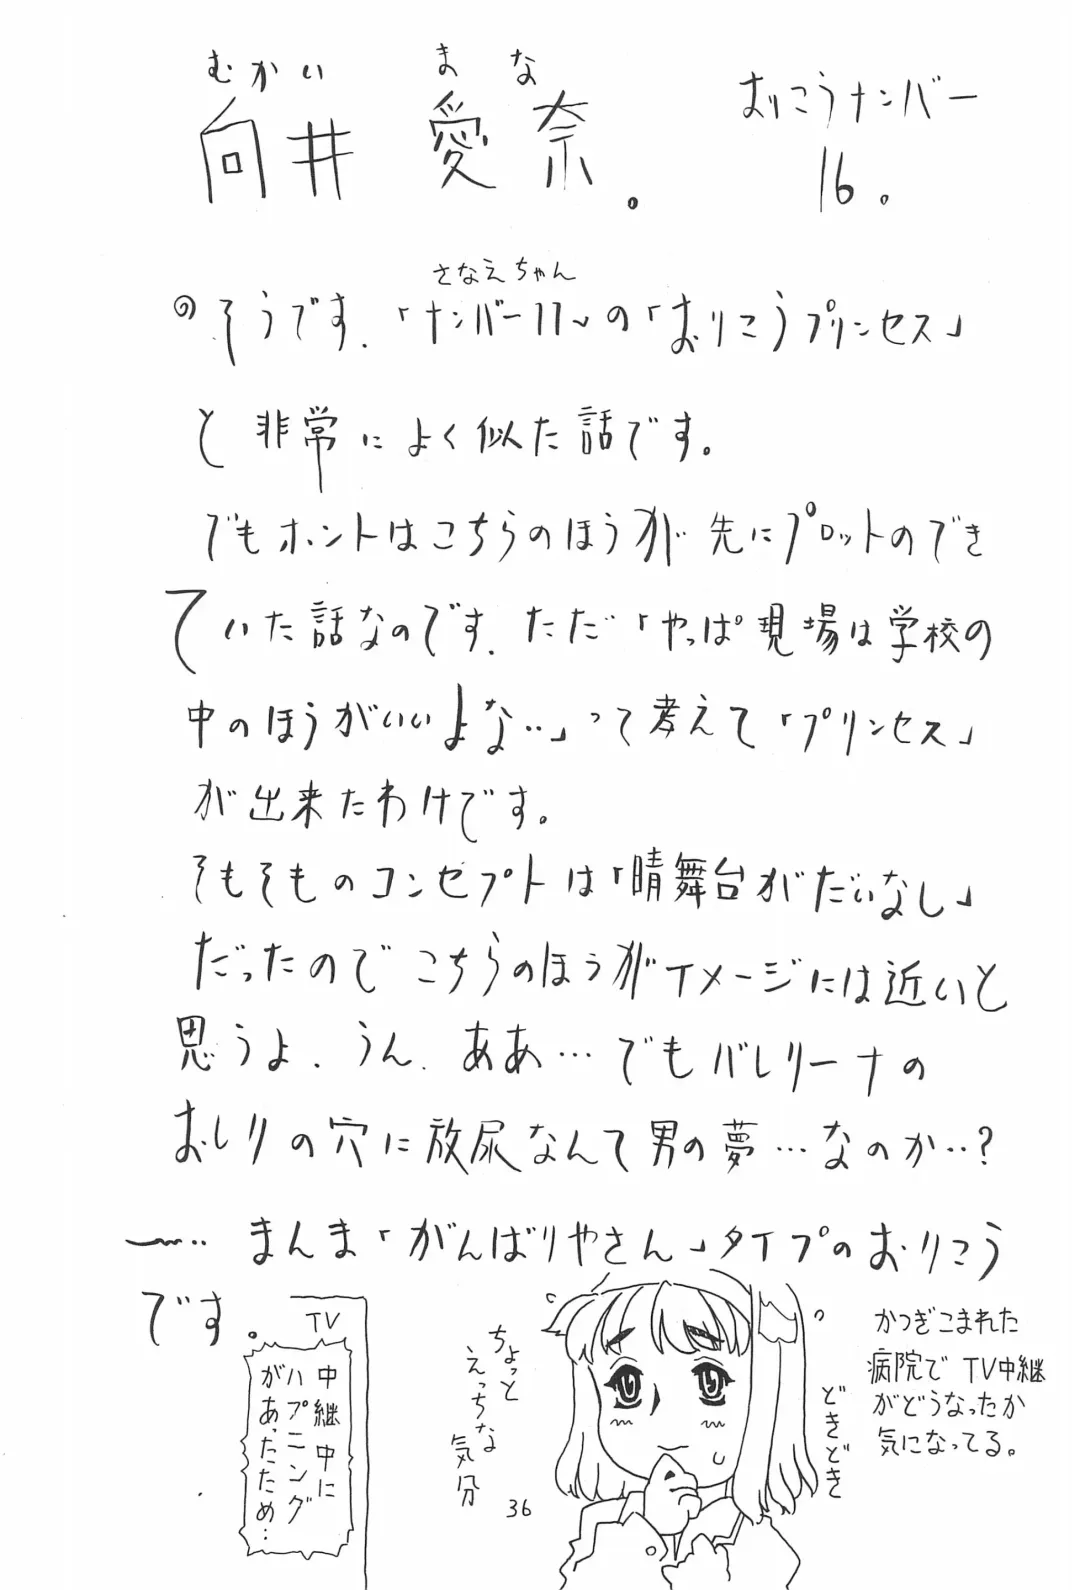 むかい まな
向井 愛奈。
おりこうナンバー
16。
さなえちゃん
のそうです.「ナンバー11」の「おりこうプリンセス」
と非常によく似た話です。
でもホントはこちらのほうが先にプロットのでき
ていた話なのです.ただ「やっぱ現場は学校の
中のほうがいいよな‥」って考えて「プリンセス」
が出来たわけです。
そもそものコンセプトは「晴舞台がだいなし」
だったのでこちらのほうがイメージには近いと
思うよ.うん.ああ…でもバレリーナの
おしりの穴に放尿なんて男の夢…なのか‥?
まんま「がんばりやさん」タイプのおりこう
です。
TV
中継中に
ハプニング
があったため…
ちょっと
えっちな
気分
36
どきどき
かつぎこまれた
病院でTV中継
がどうなったか
気になってる。